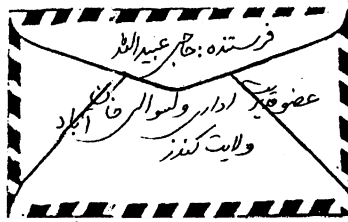 فرستنده: حاجی عبیدالله
عضو مدیریت اداری ولسوالی خان آباد
ولایت کندز